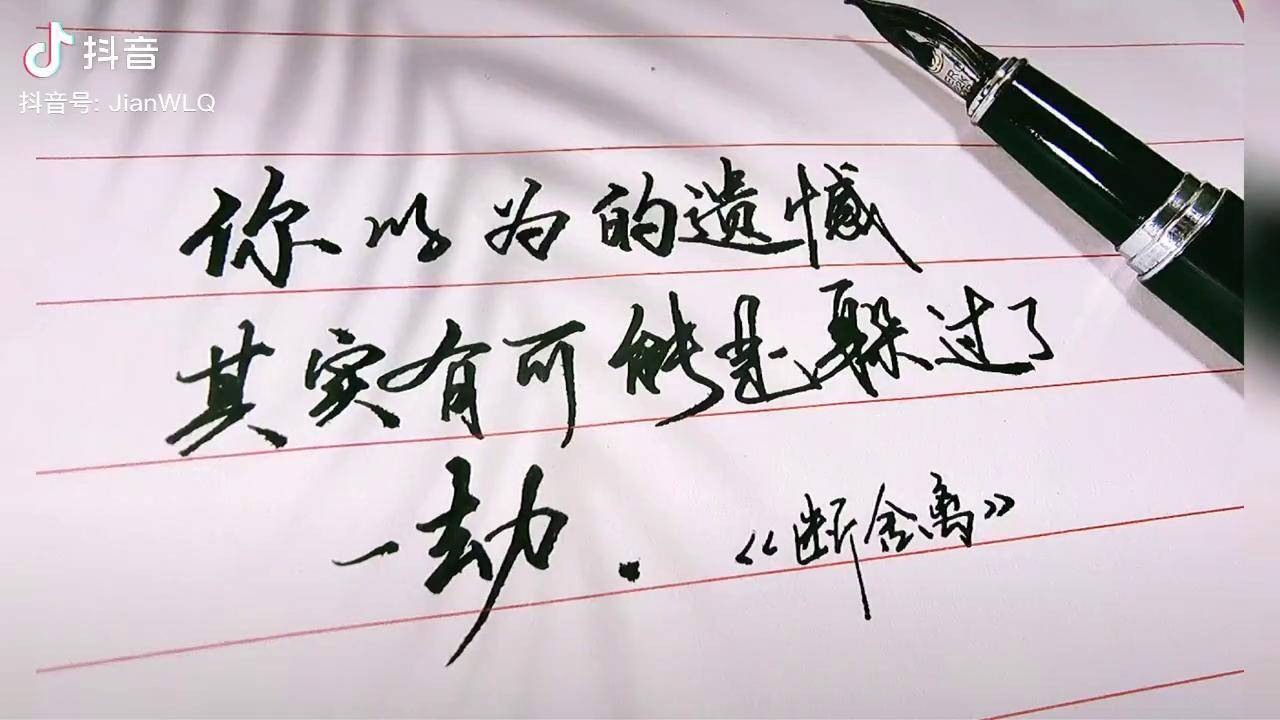 抖音
抖音号: JianWLQ
你以为的遗憾
其实有可能是躲过了
一劫.
《断舍离》